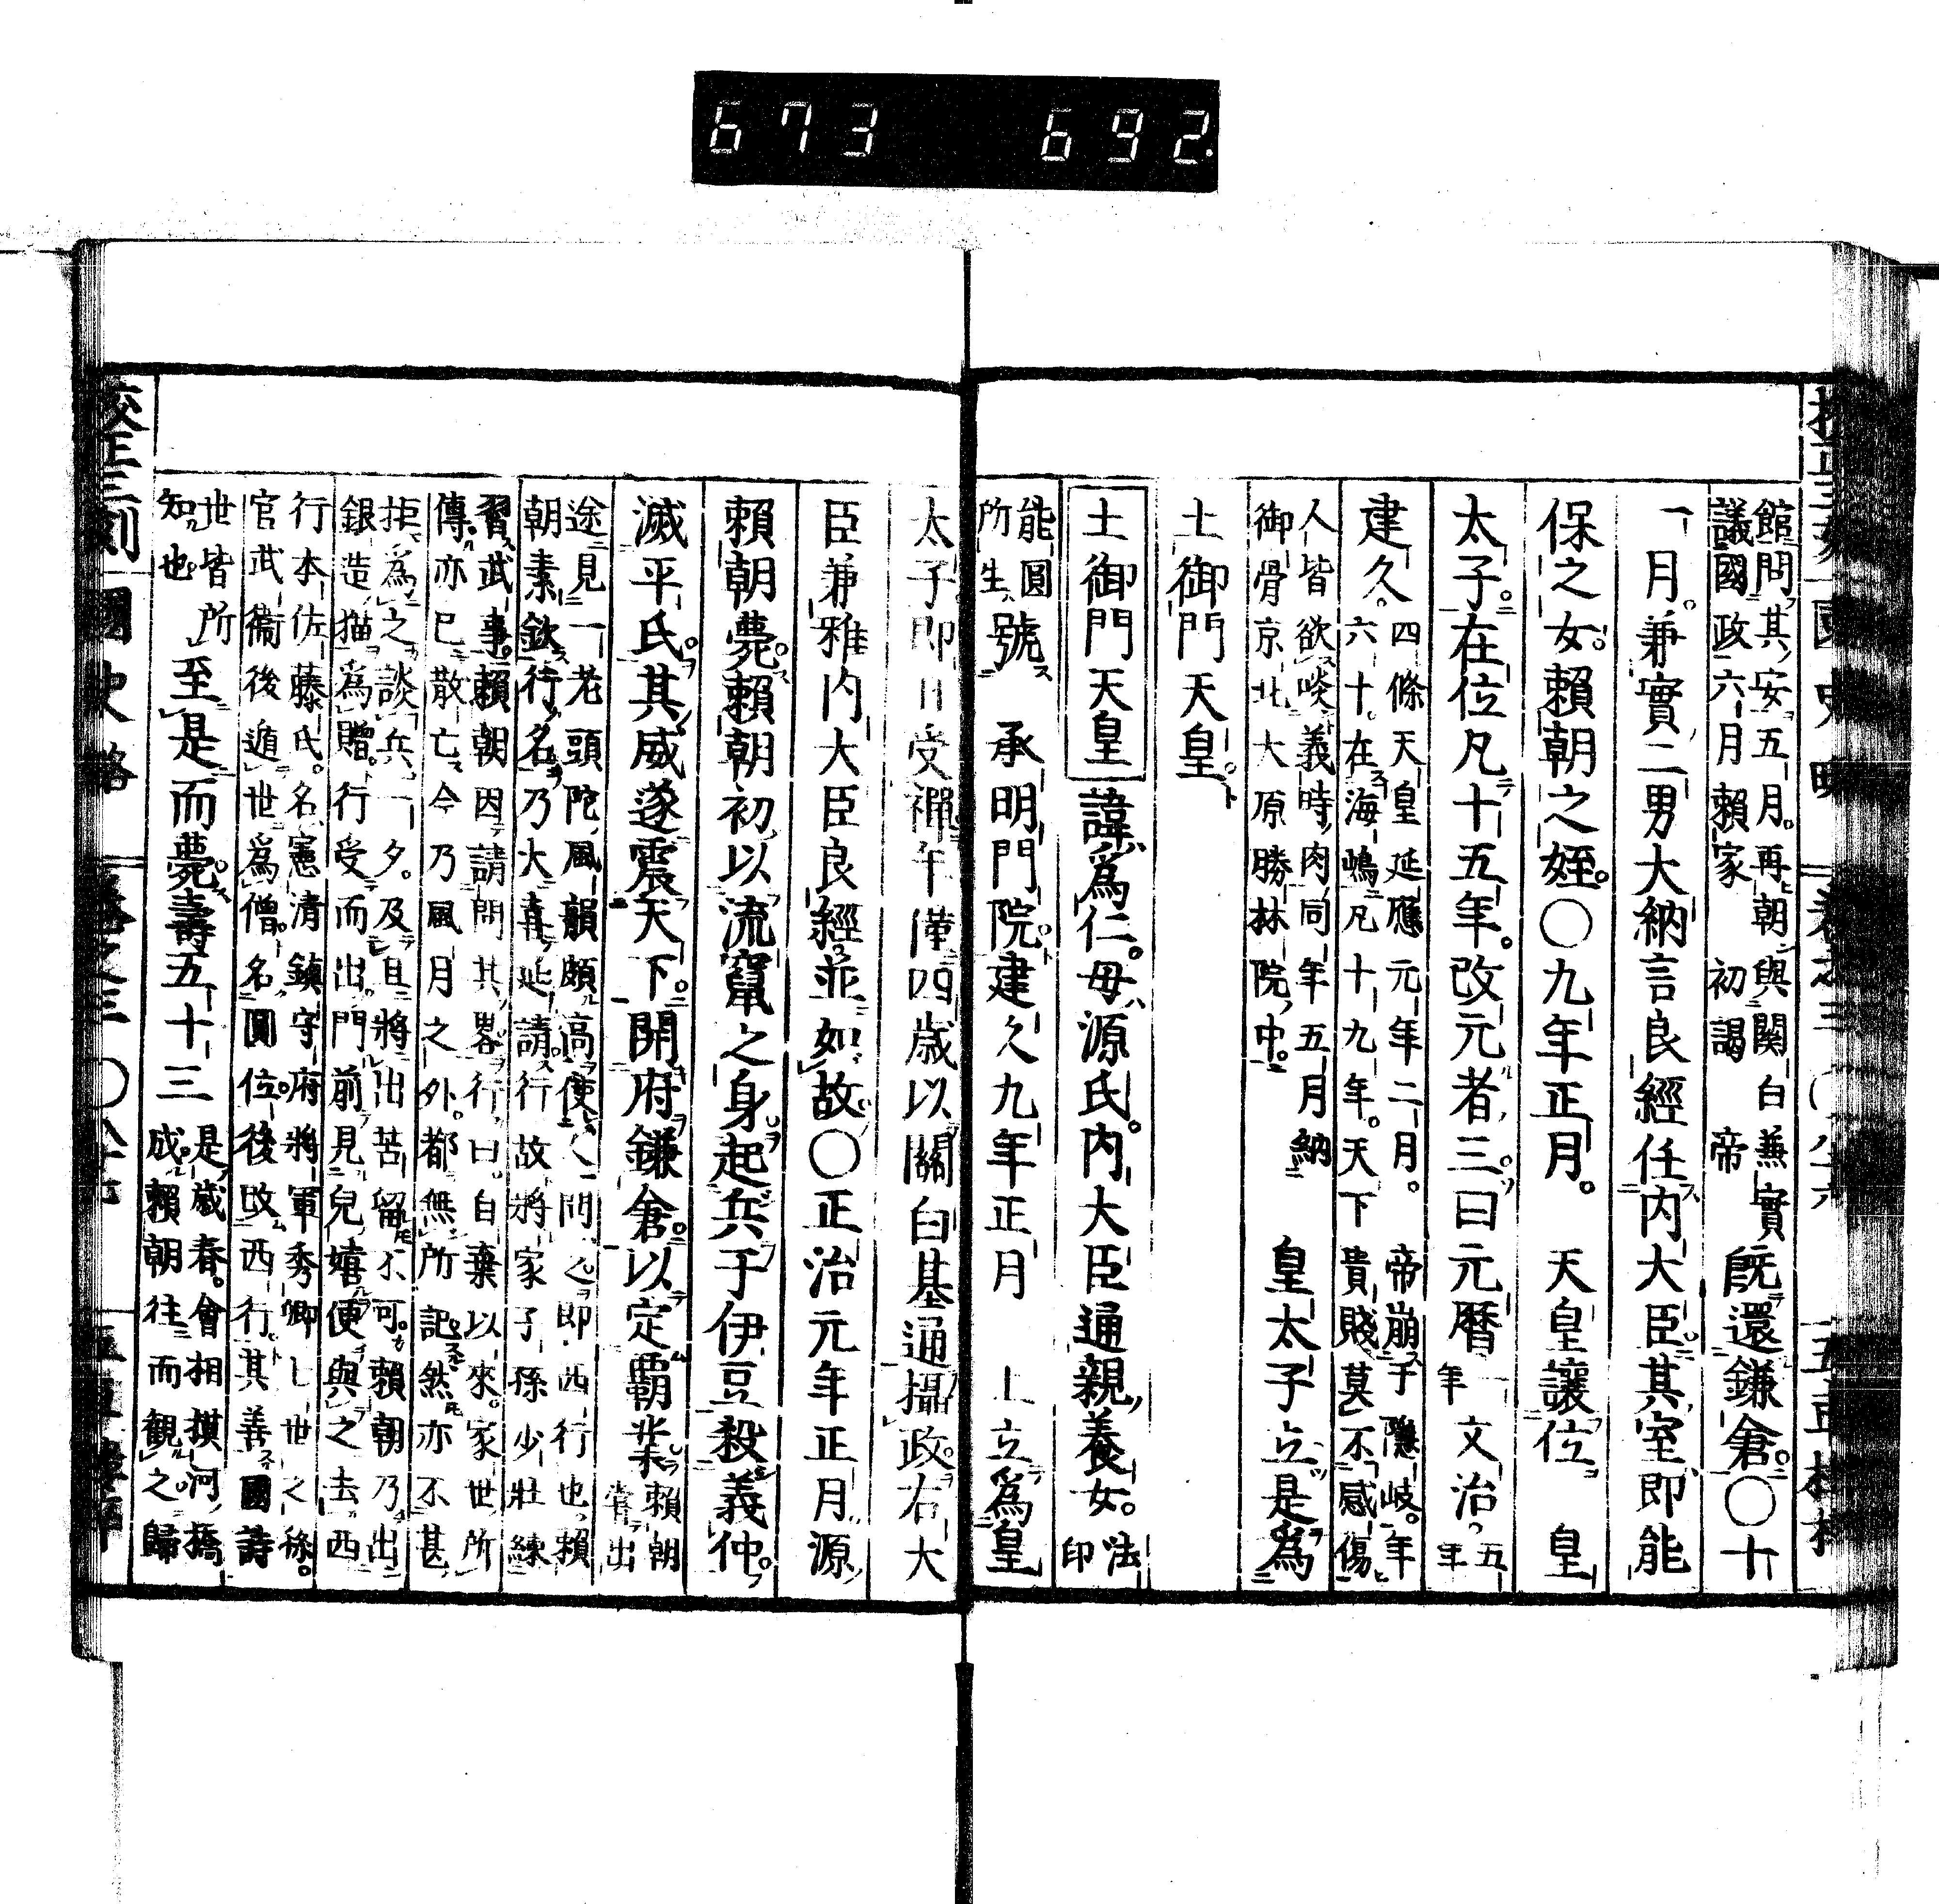 673 692.
館問其安五月。再朝與関白兼實
議國政六月賴家初謁帝
既還鎌倉。〇十
一月。兼實二男大納言良經任内大臣其室即能
保之女。賴朝之姪。〇九年正月。天皇讓位皇
太子。在位凡十五年。改元者三。曰元暦
一年
文治。
五年
建久。
四條天皇延應元年二月。帝崩于隱岐。年
六十。在海嶋凡十九年。天下貴賤莫不感傷
人皆欲啖義時肉同年五月納
御骨京北大原勝林院中。
皇太子立是為
土御門天皇。
土御門天皇
諱為仁。母源氏。内大臣通親養女。
法印
能圓
所生
號承明門院。建久九年正月上立為皇
太子即日受禪年僅四歳以關白基通攝政。右大
臣兼雅内大臣良經並如故〇正治元年正月源
賴朝薨。賴朝初以流竄之身起兵于伊豆殺義仲。
滅平氏。其威遂震天下。開府鎌倉。以定覇業
賴朝
嘗出
途見一老頭陀風韻頗高使人問之即西行也賴
朝素欽行名乃大喜延請行故將家子孫少壯練
習武事。賴朝因請問其畧行曰。自棄以來。家世所
傳亦已散亡今乃風月之外。都無所記然亦不甚
拒為之談兵一夕。及且將出苦留不可賴朝乃出
銀造猫為贈行受而出。門前見兒嬉便與之去西
行本佐藤氏。名憲清鎮守府將軍秀郷七世之孫。
官武衞後遁世為僧名圓位。後改西行其善國詩
世皆所
知也
至是而薨。壽五十三
是歳春。會相摸河橋
成。賴朝往而觀之。歸
校正三刻國史略